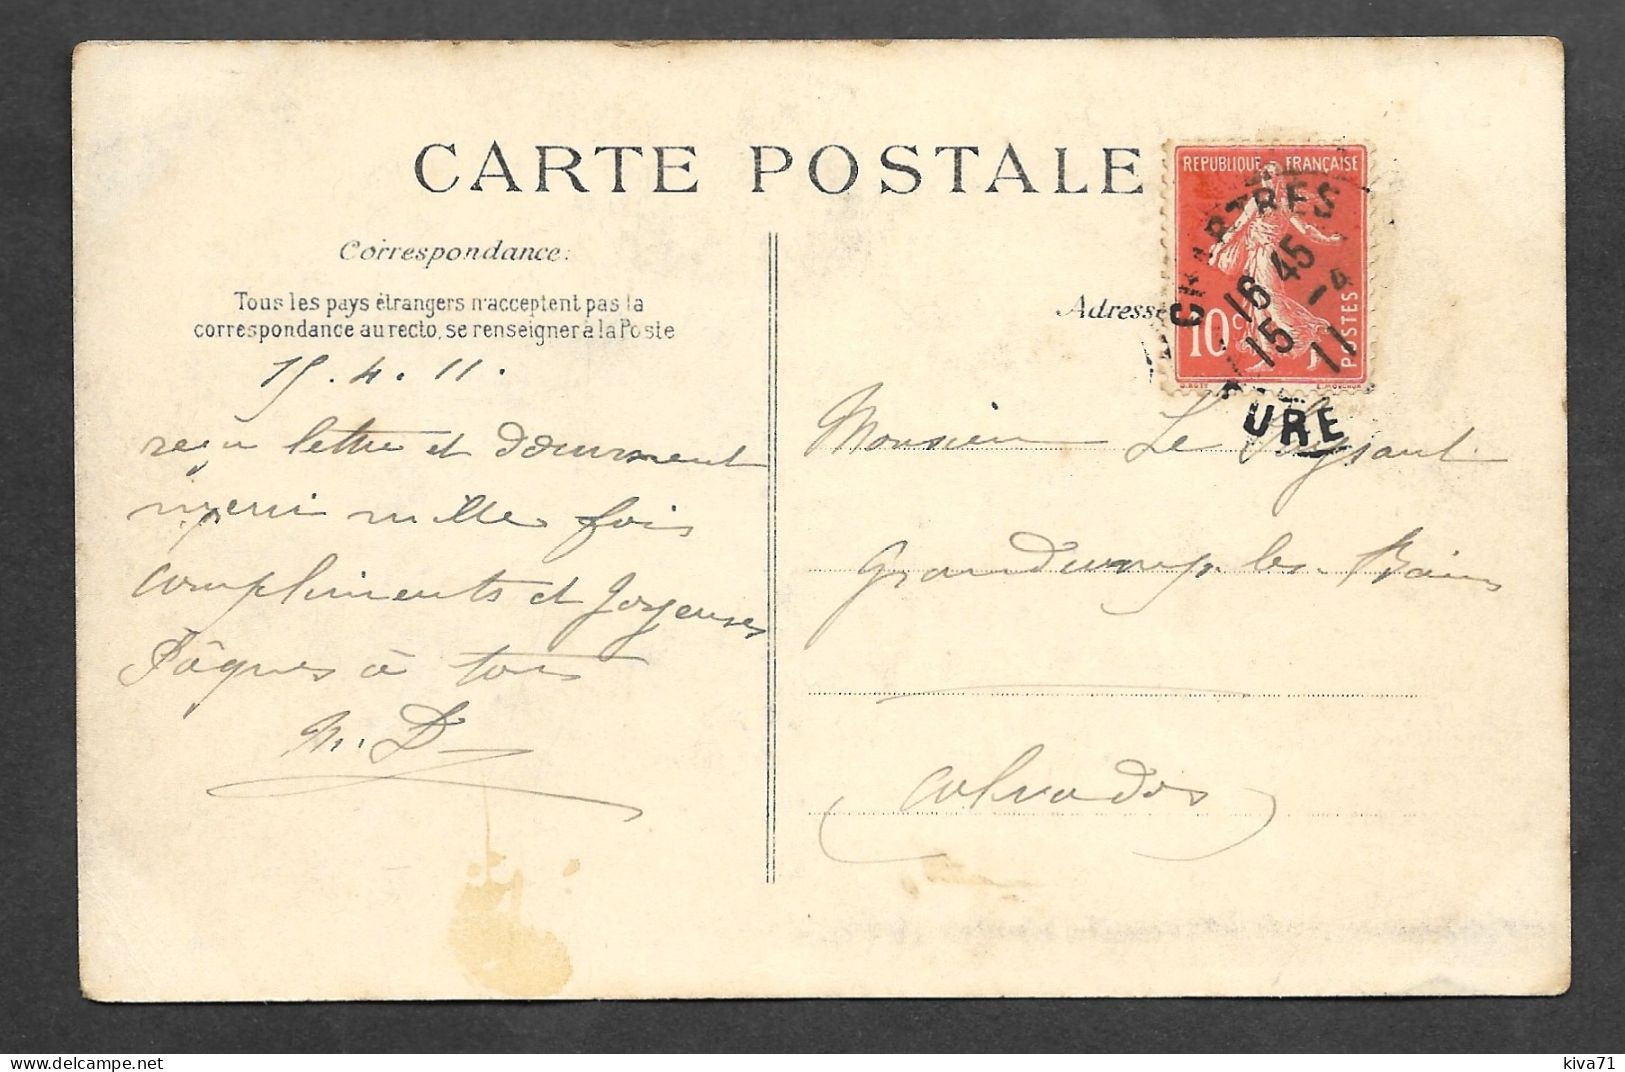 CARTE POSTALE
Correspondance:
Tous les pays étrangers n'acceptent pas la
correspondance au recto, se renseigner à la Poste
15.4.11.
reçu lettre et document
merci mille fois
compliments et Joyeuses
Pâques à tous
M. D
REPUBLIQUE FRANÇAISE
10c
POSTES
O.ROTY
E.MOUCHON
CHARTRES
16 45
15 -4
11
URE
Adresse
Monsieur Le Paysant
Grandcamp-les-Bains
Calvados
kiva71